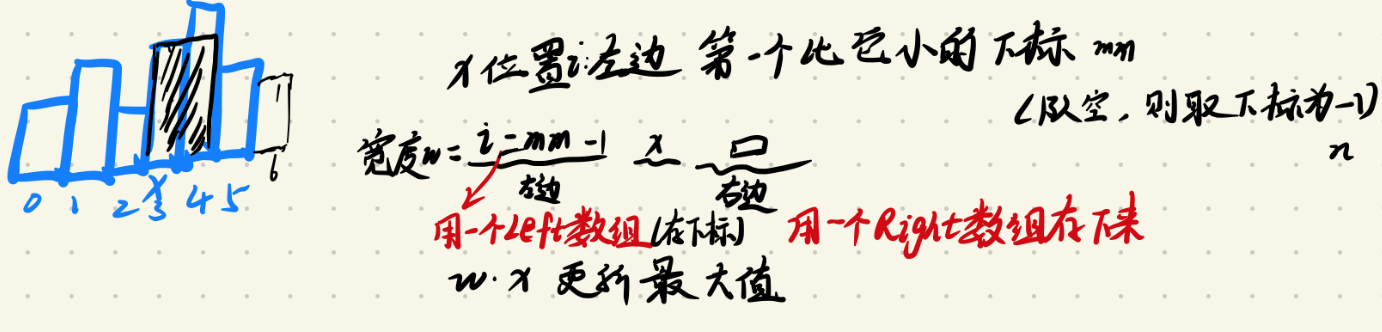 x位置i:左边 第一个比它小的下标 mm
(队空,则取下标为-1)
n
宽度w= i-mm-1 x □
左边 右边
用一个Left数组(存下标) 用一个Right数组存下来
w·x 更新最大值
0 1 2 3 4 5 6
x